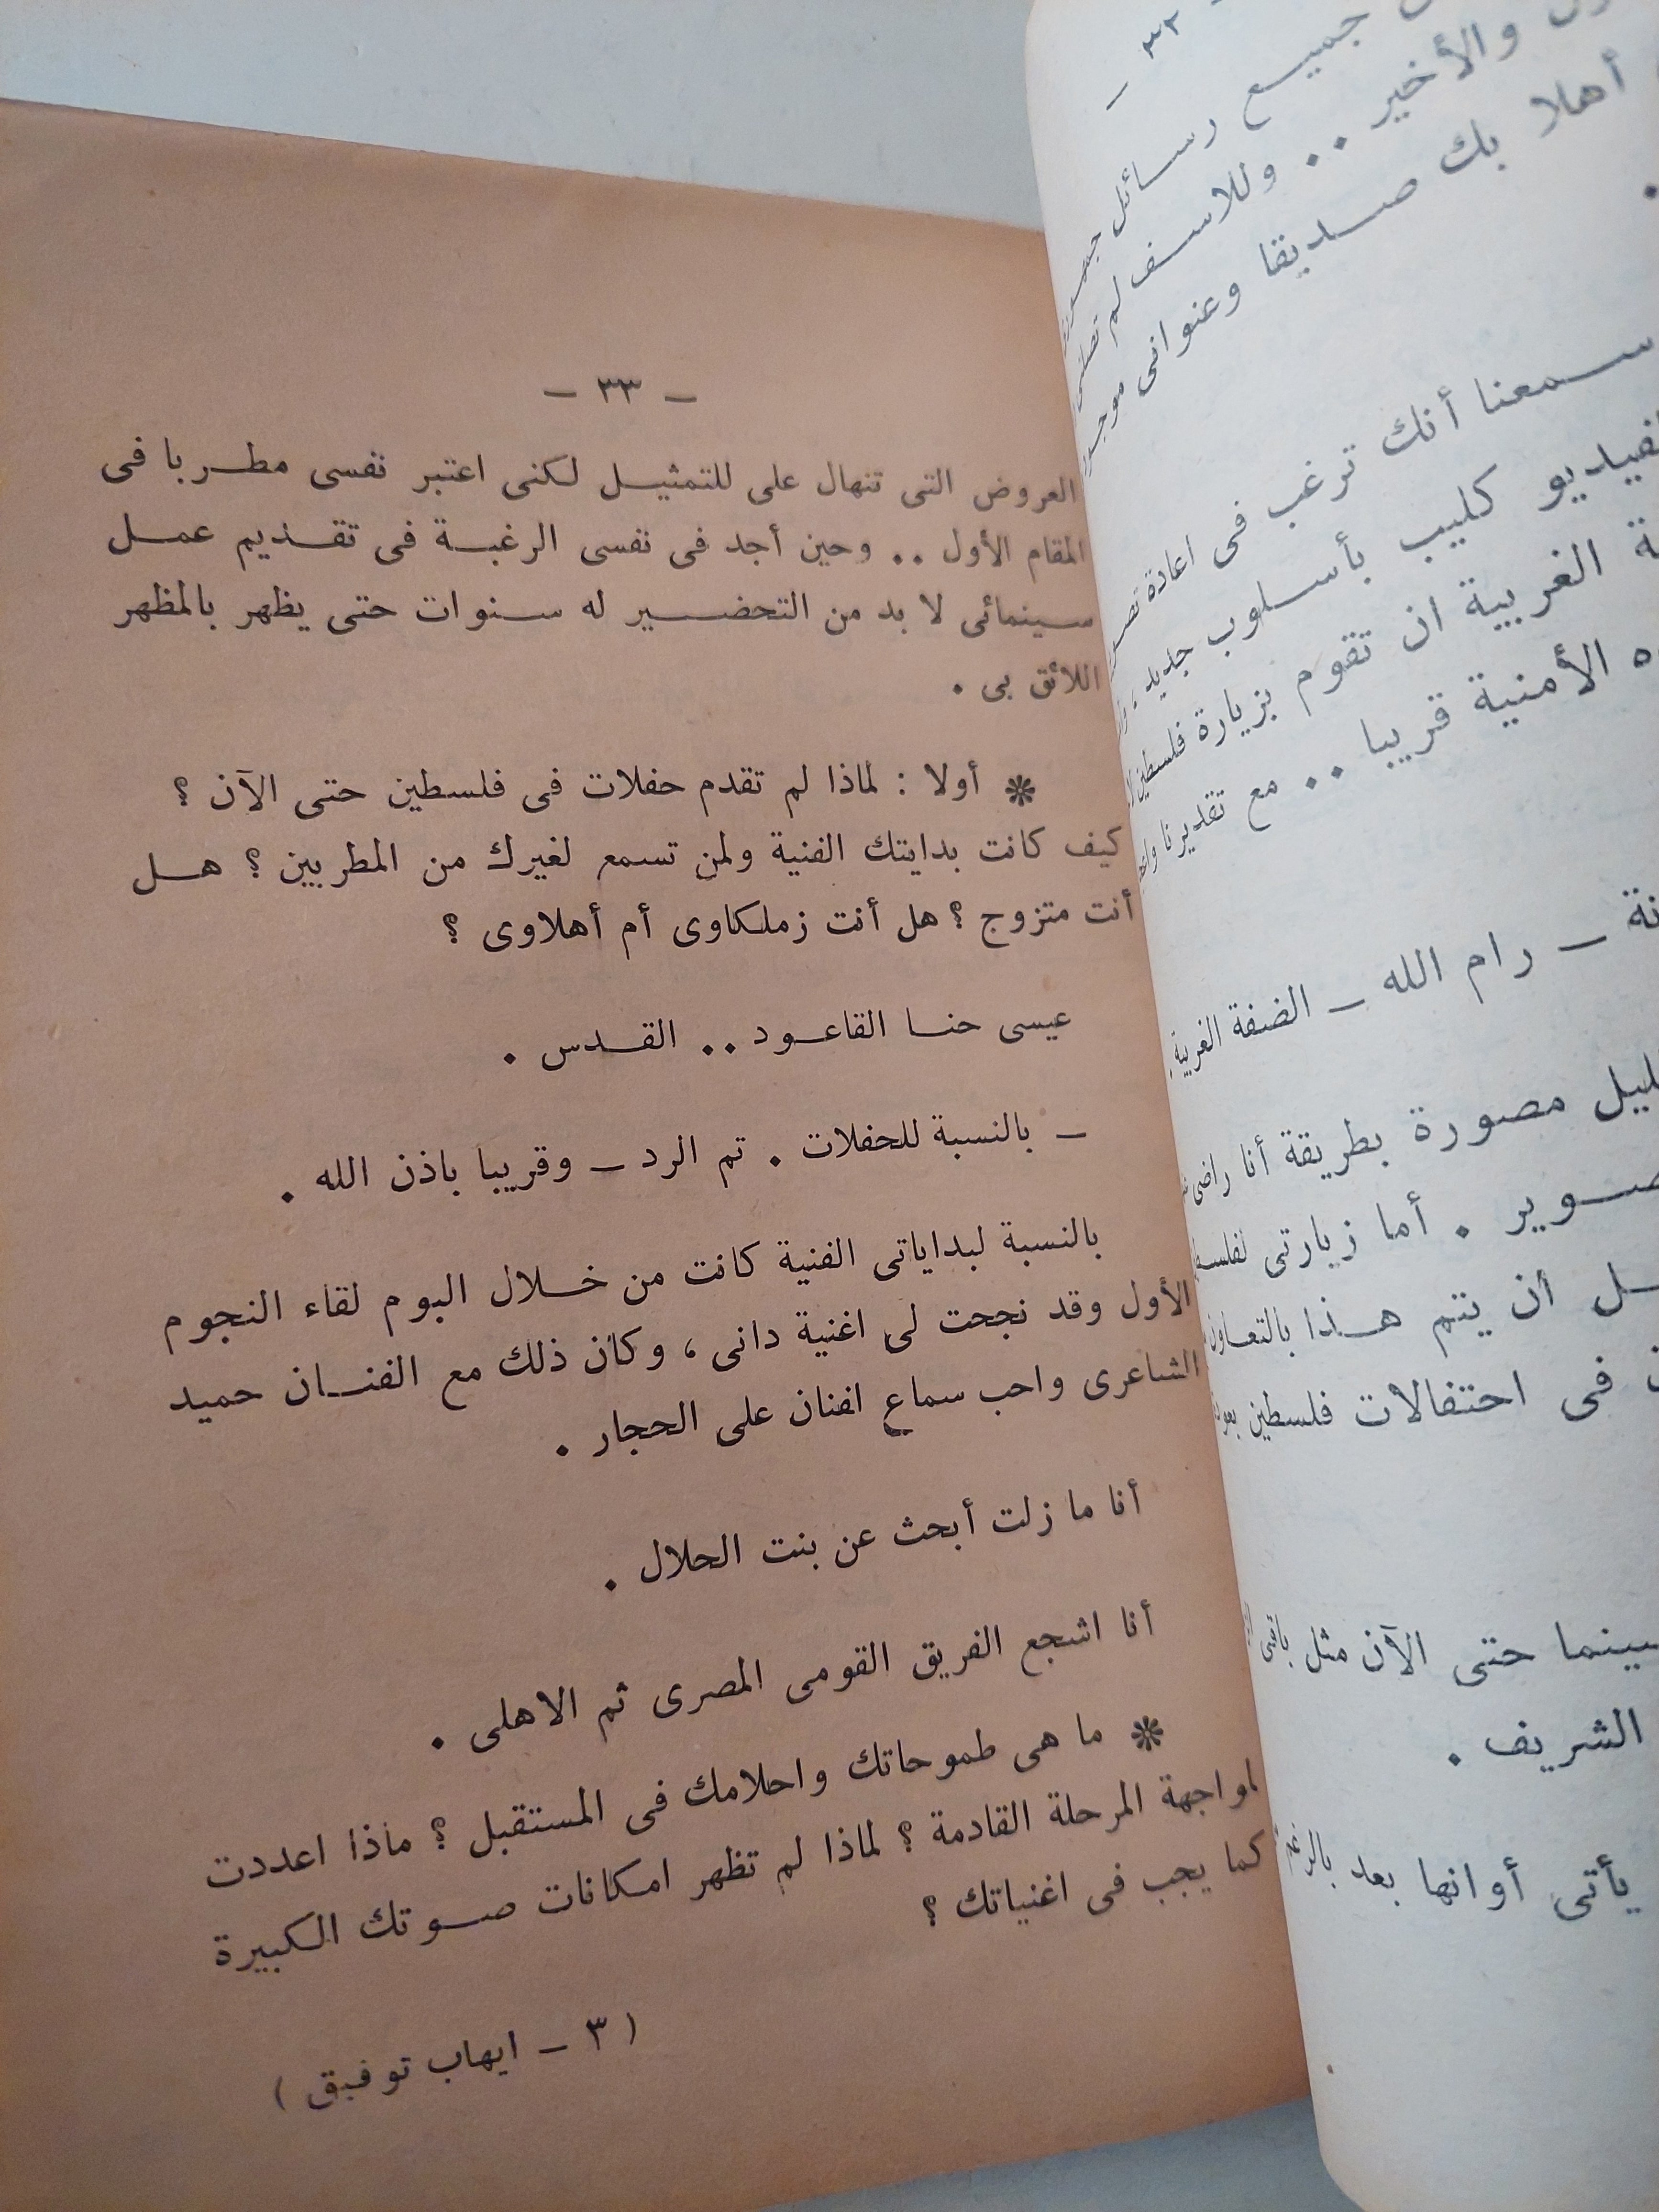 - ٣٢ -
جميع رسائل
والأخير .. وللاسف لم تصلنى
أهلا بك صديقا وعنوانى
سمعنا أنك ترغب فى اعادة
كليب بأسلوب جديد
الغربية ان تقوم بزيارة فلسطين
الأمنية قريبا .. مع تقديرنا
– رام الله – الضفة الغربية
مصورة بطريقة أنا راضى
أما زيارتى
أن يتم هذا بالتعاون
فى احتفالات فلسطين
حتى الآن مثل باقى
الشريف .
يأتى أوانها بعد
– ٣٣ –
العروض التى تنهال على للتمثيل لكنى اعتبر نفسى مطربا فى
المقام الأول .. وحين أجد فى نفسى الرغبة فى تقديم عمل
سينمائى لا بد من التحضير له سنوات حتى يظهر بالمظهر
اللائق بى .
* أولا : لماذا لم تقدم حفلات فى فلسطين حتى الآن ؟
كيف كانت بدايتك الفنية ولمن تسمع لغيرك من المطربين ؟ هل
أنت متزوج ؟ هل أنت زملكاوى أم أهلاوى ؟
عيسى حنا القاعود .. القدس .
– بالنسبة للحفلات . تم الرد – وقريبا باذن الله .
بالنسبة لبداياتى الفنية كانت من خلال البوم لقاء النجوم
الأول وقد نجحت لى اغنية دانى ، وكان ذلك مع الفنان حميد
الشاعرى واحب سماع افنان على الحجار .
أنا ما زلت أبحث عن بنت الحلال .
أنا اشجع الفريق القومى المصرى ثم الاهلى .
* ما هى طموحاتك واحلامك فى المستقبل ؟ ماذا اعددت
لمواجهة المرحلة القادمة ؟ لماذا لم تظهر امكانات صوتك الكبيرة
كما يجب فى اغنياتك ؟
( ٣ – ايهاب توفيق )